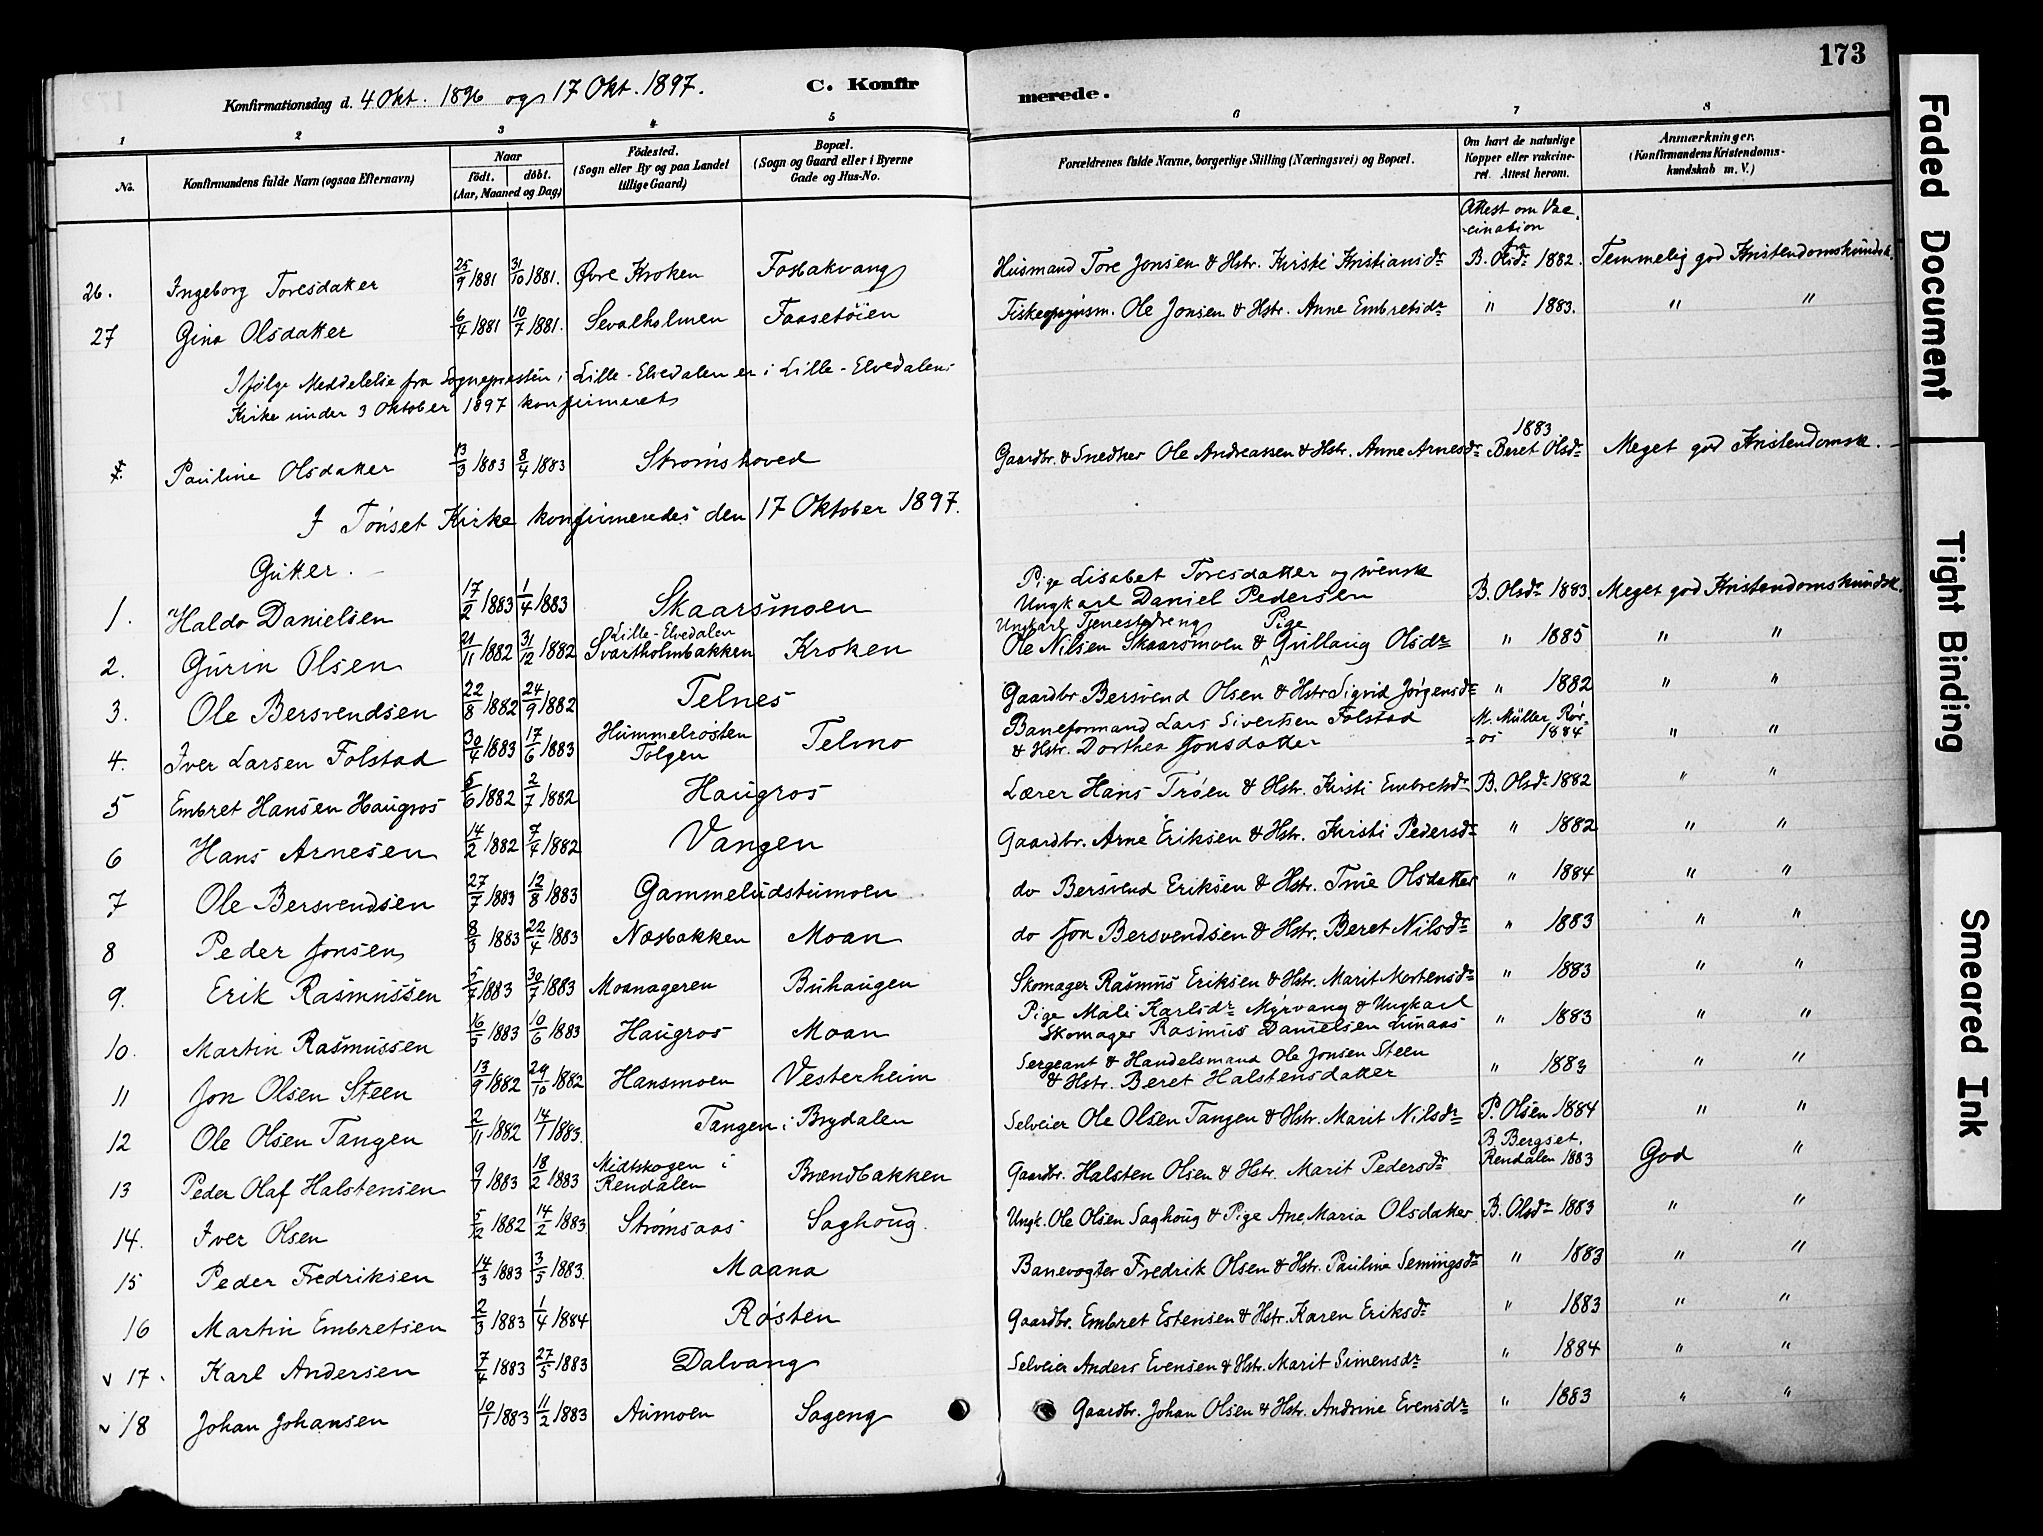 173
Konfirmationsdag d. 4 Okt. 1896 og 17 Okt. 1897. C. Konfirmerede.
1 2 3 4 5 6 7 8
No. Konfirmandens fulde Navn (ogsaa Efternavn) Naar født. døbt. (Aar, Maaned og Dag) Fødested. (Sogn eller By og paa Landet tillige Gaard) Bopæl. (Sogn og Gaard eller i Byerne Gade og Hus-No. Forældrenes fulde Navne, borgerlige Stilling (Næringsvei) og Bopæl. Om havt de naturlige Kopper eller vakcineret. Attest herom. Anmærkninger. (Konfirmandens Kristendomskundskab m. V.)
Attest om Vaccination fra
26. Ingeborg Toresdatter 25/9 1881 31/10 1881. Øvre Kroken Fosbakvang Husmand Tore Jonsen & Hstr. Kirsti Kristiansdr B. Olsdr 1882. Temmelig god Kristendomskundsk.
27 Gina Olsdatter 6/4 1881 10/7 1881. Sevalholmen Faasetøien Ole Jonsen & Hstr. Anne Embretsdr " 1883. " "
Ifølge Meddelelse fra Sognepresten i Lille-Elvedalen er i Lille-Elvedalens
Kirke under 3 Oktober 1897 konfirmeret
Pauline Olsdatter 13/3 1883 8/4 1883 Strømshoved Gaardbr. & Snedker Ole Andreassen & Hstr. Anne Arnesdr 1883 Beret Olsdr Meget god Kristendomsk.
I Tønset Kirke konfirmeredes den 17 Oktober 1897.
Gutter.
1. Haldo Danielsen 17/2 1883 1/4 1883 Skaarsmoen Pige Lisabet Toresdatter og svensk Ungkarl Daniel Pedersen B. Olsdr 1883. Meget god Kristendomskundsk.
2. Gurin Olsen 21/11 1882 31/12 1882 Lille-Elvedalen Svartholmbakken Kroken Ungkarl Tjenestedreng Ole Nilsen Skaarsmoen & Pige Gullaug Olsdr " 1885 " "
3. Ole Bersvendsen 22/8 1882 24/9 1882 Telnes Gaardbr Bersvend Olsen & Hstr Sigrid Jørgensdr " 1882 " "
4. Iver Larsen Folstad 30/4 1883 17/6 1883 Hummelrosten Tolgen Telmo Baneformand Lars Sivertsen Folstad & Hstr. Dorthea Jonsdatter M. Müller Røros 1884 " "
5 Embret Hansen Haugros 5/6 1882 2/7 1882 Haugros Lærer Hans Trøen & Hstr. Kirsti Embretsdr B. Olsdr 1882 " "
6 Hans Arnesen 14/2 1882 7/4 1882 Vangen Gaardbr. Arne Eriksen & Hstr. Kirsti Pedersdr " 1882 " "
7 Ole Bersvendsen 27/7 1883 12/8 1883 Gammeludstumoen do Bersvend Eriksen & Hstr. Olsdatter " 1884 " "
8 Peder Jonsen 8/3 1883 22/4 1883 Næsbakken Moan do Jon Bersvendsen & Hstr. Beret Nilsdr " 1883 " "
9. Erik Rasmussen 5/7 1883 30/7 1883 Moanageren Buhaugen Skomager Rasmus Eriksen & Hstr. Marit Mortensdr " 1883 " "
10. Martin Rasmussen 16/5 1883 10/6 1883 Haugros Moan Pige Mali Karlsdr Myrvang & Ungkarl Skomager Rasmus Danielsen Lunaas " 1883 " "
11 Jon Olsen Steen 13/9 1882 29/10 1882 Hansmoen Vesterheim Sergeant & Handelsmand Ole Jonsen Steen & Hstr. Beret Halstensdatter " 1883 " "
12 Ole Olsen Tangen 2/11 1882 14/1 1883. Tangen i Brydalen Selveier Ole Olsen Tangen & Hstr. Marit Nilsdr P. Olsen 1884 " "
13 Peder Olaf Halstensen 9/1 1883 18/2 1883 Midtskogen i Rendalen Brændbakken Gaardbr. Halsten Olsen & Hstr. Marit Pedersdr B. Bergset, Rendalen 1883 God "
14. Iver Olsen 5/2 1882 14/2 1883 Strømsaas Saghoug Ungk. Ole Olsen Saghoug & Pige Ane Maria Olsdatter B. Olsdr 1883 " "
15 Peder Fredriksen 14/3 1883 3/5 1883. Maana Banevogter Fredrik Olsen & Hstr. Pauline Semingsdr " 1883 " "
16 Martin Embretsen 2/3 1883 1/4 1884 Røsten Gaardbr. Embret Estensen & Hstr. Karen Eriksdr " 1883 " "
v 17. Karl Andersen 7/4 1883 27/5 1883 Dalvang Selveier Anders Evensen & Hstr. Marit Simensdr " 1884 " "
v 18 Johan Johansen 10/1 1883 11/2 1883 Aumoen Sageng Gaardbr. Johan Olsen & Hstr. Andrine Evensdr " 1883 " "
Faded Document
Tight Binding
Smeared Ink